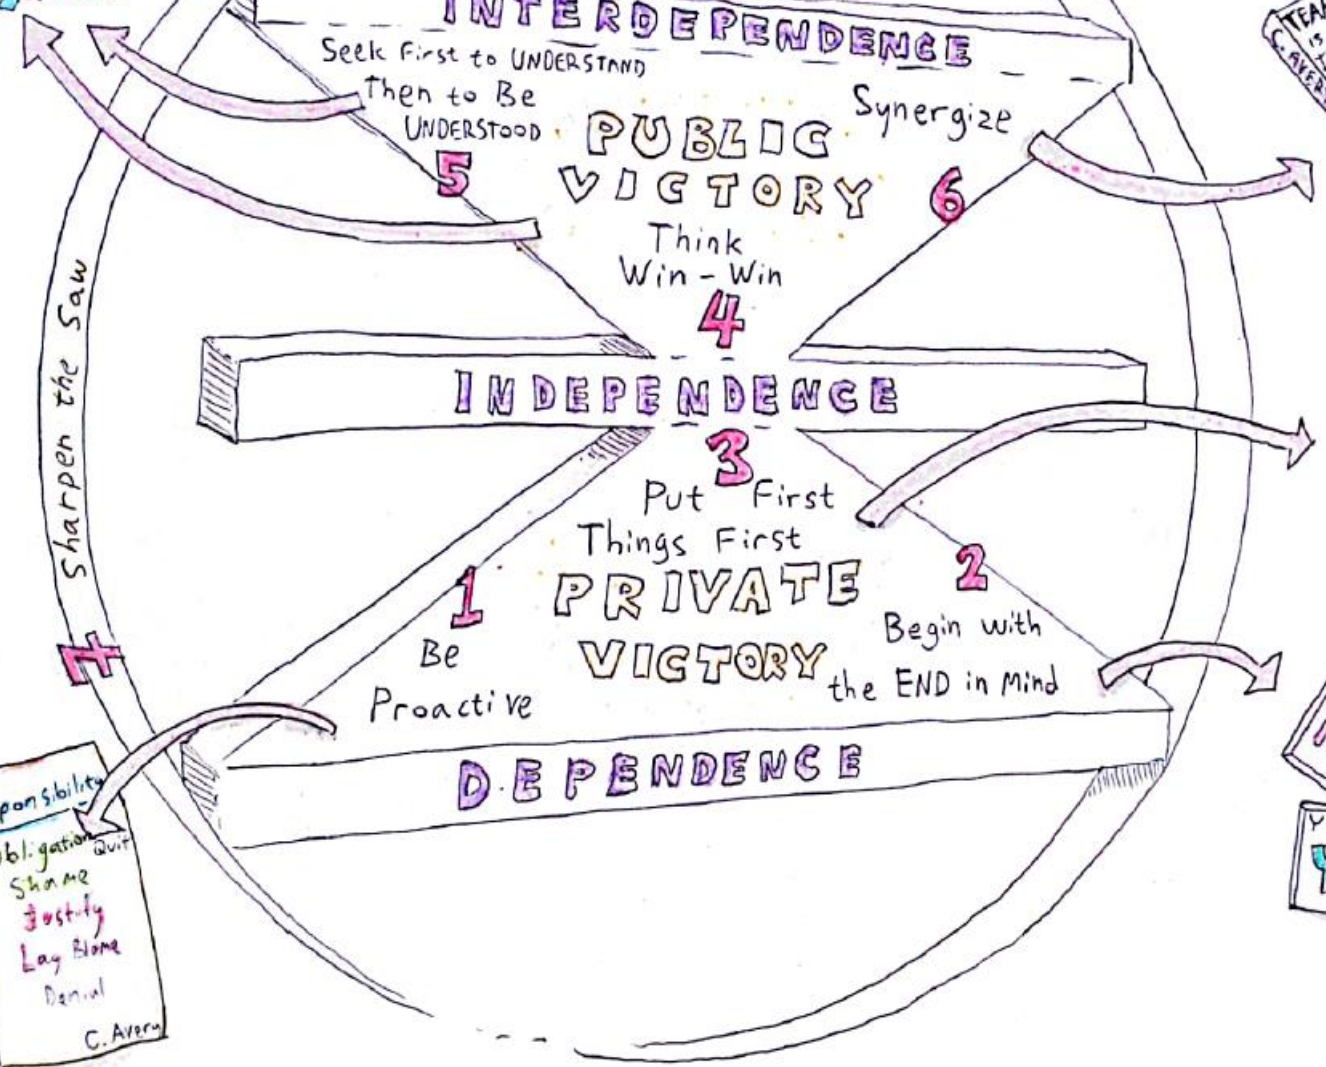 INTERDEPENDENCE
Seek First to UNDERSTAND
Then to Be
UNDERSTOOD
5
PUBLIC
VICTORY
Synergize
6
Think
Win - Win
4
TEA
IS
C. AVER
INDEPENDENCE
3
Put First
Things First
1
Be
Proactive
PRIVATE
VICTORY
2
Begin with
the END in Mind
DEPENDENCE
Sharpen the Saw
7
ponsibility
bligation
Quit
Shame
Justify
Lay Blame
Denial
C. Avery
Y